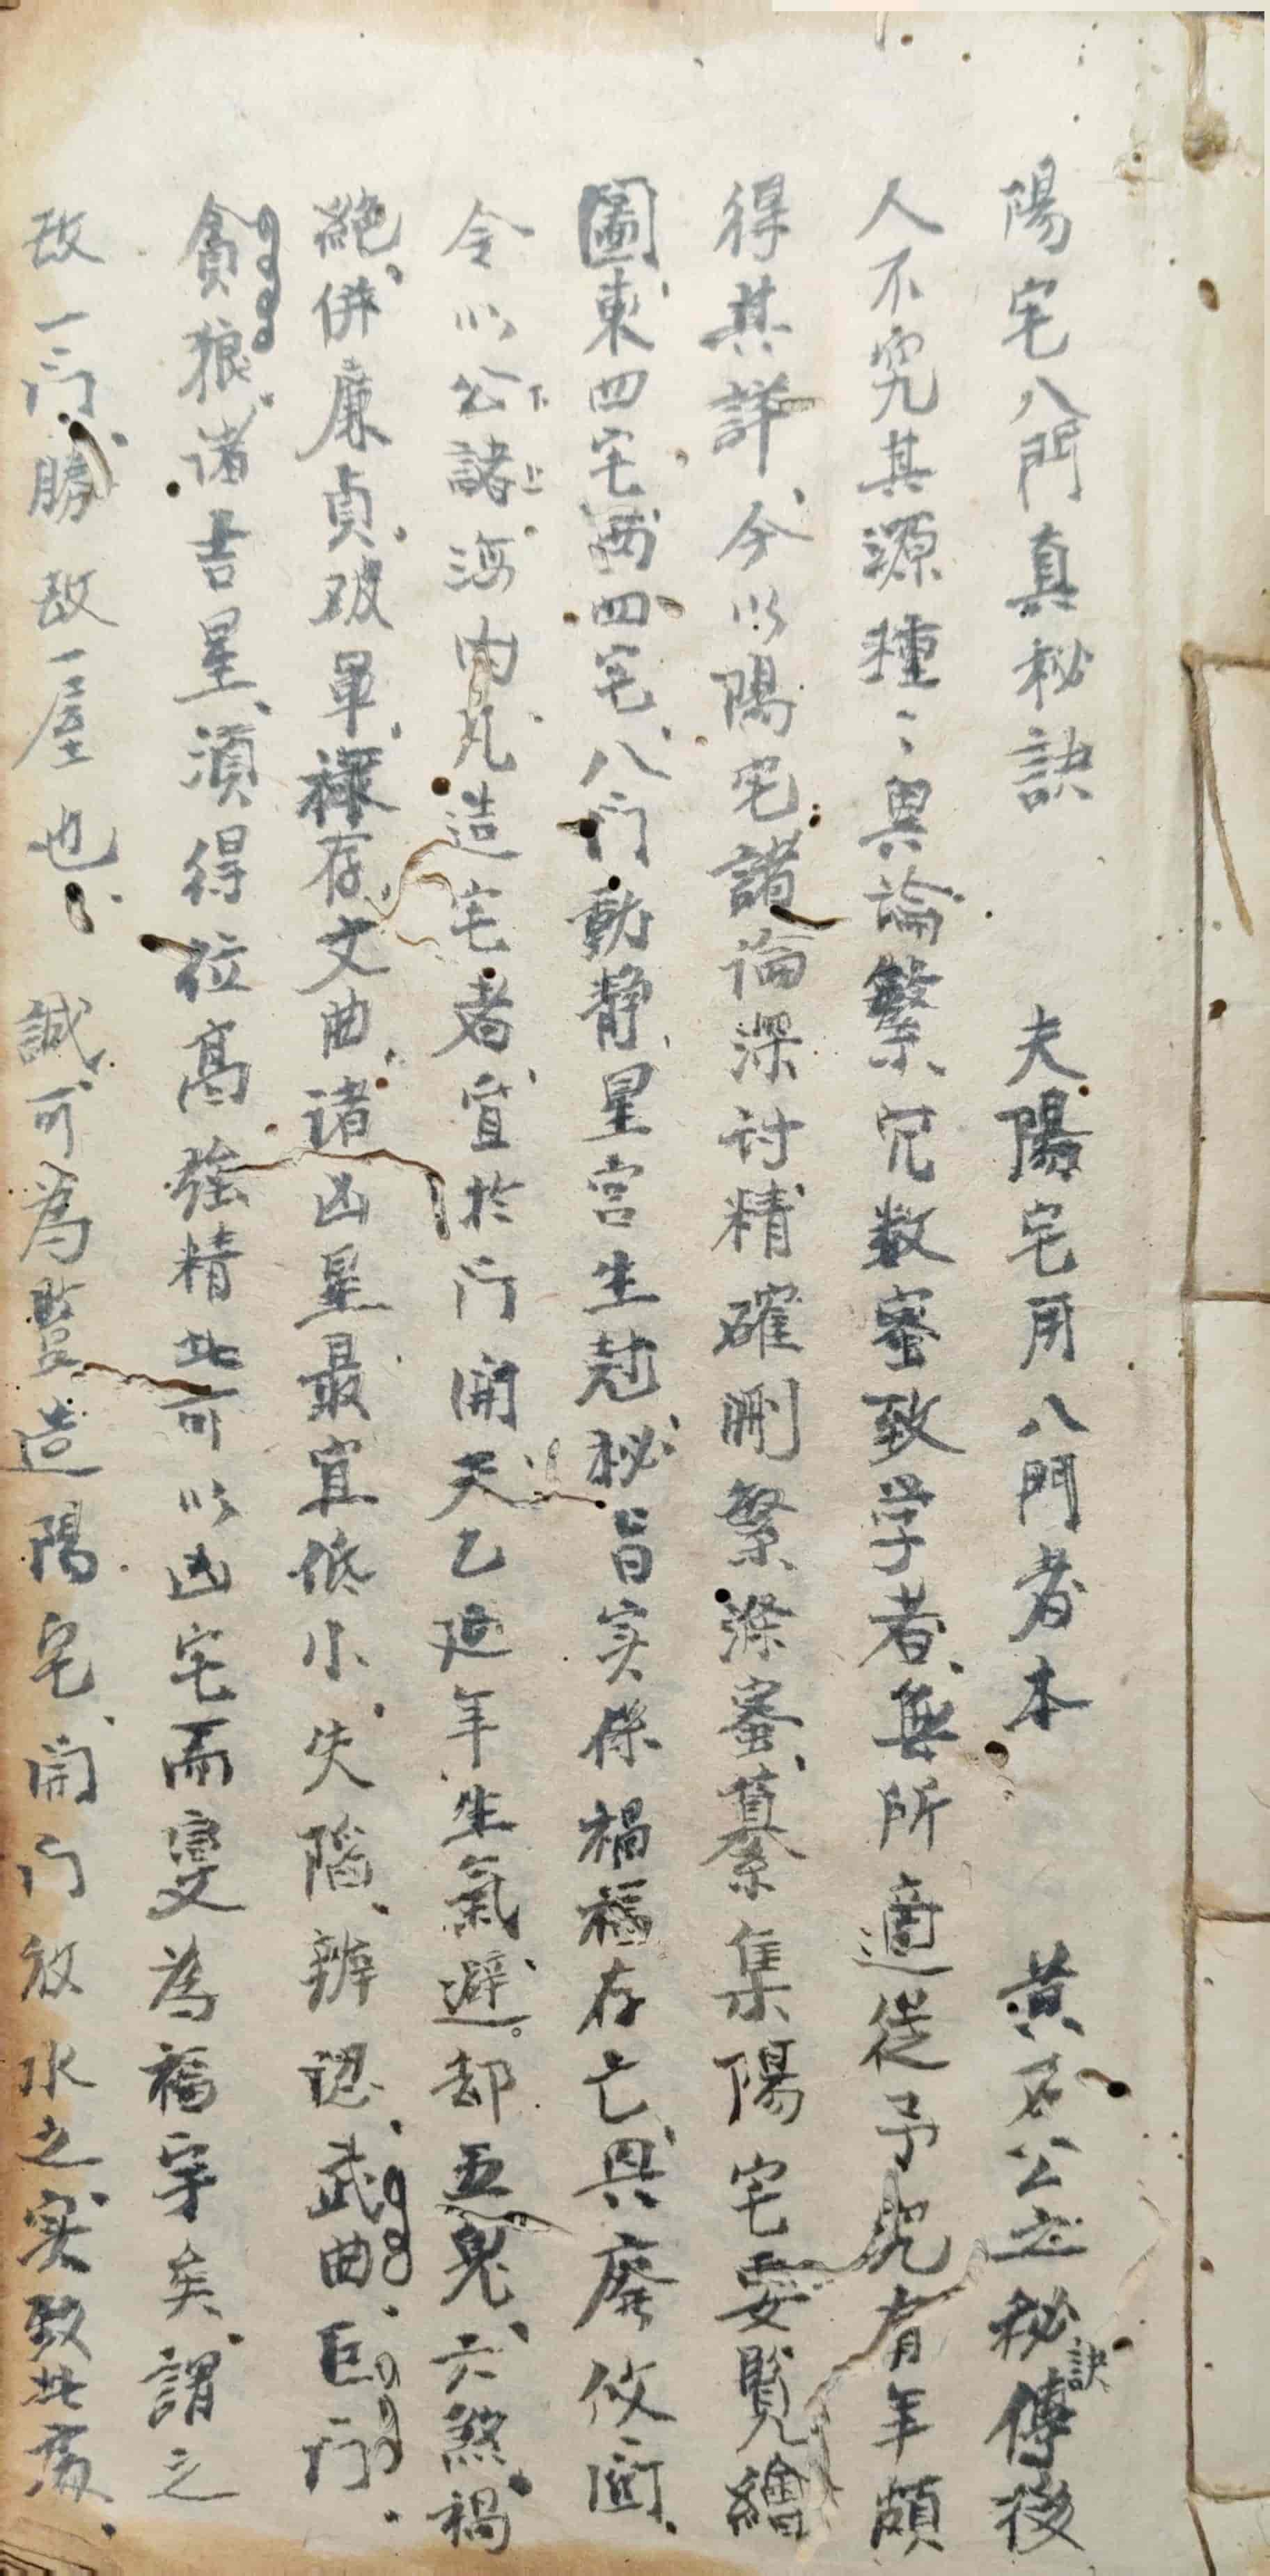 陽宅八門真秘訣 夫陽宅用八門者本 黄石公之秘訣傳後
人不究其源種〻異論繁冗数蜜致学者無所適從予究有年頗
得其詳今以陽宅諸論深討精確刪繁滌蜜纂集陽宅要覧繪
圖東四宅西四宅八门動静星宫生尅秘旨实係禍福存亡興廃攸関
令以公諸海内凡造宅者宜於门開天乙延年生氣避却五鬼六煞禍
絶併廉貞破軍禄存文曲诸凶星最宜低小失陷辨認武曲巨门
貪狼诸吉星須得位高強精此可以凶宅而變為福宇矣謂之
敌一门勝敌一屋也誠可為豎造陽宅開门放水之实致